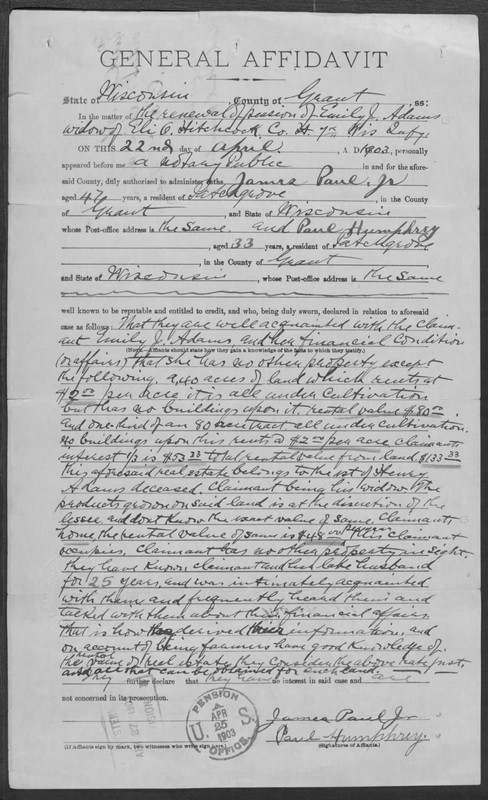 GENERAL AFFIDAVIT
State of Wisconsin, County of Grant, ss:
In the matter of the renewal of pension of Emily J. Adams
widow of Eli C. Hitchcock, Co. H 7th Wis Infy.
ON THIS 22nd day of April, A. D. 1903, personally
appeared before me a notary Public in and for the afore-
said County, duly authorized to administer oaths, James Paul, Jr
aged 46 years, a resident of Patchgrove, in the County
of Grant, and State of Wisconsin
whose Post-office address is the same. and Paul Humphrey
, aged 33 years, a resident of Patchgrove
, in the County of Grant
and State of Wisconsin, whose Post-office address is the same
well known to be reputable and entitled to credit, and who, being duly sworn, declared in relation to aforesaid
case as follows: That they are well acquainted with the claim-
ant Emily J. Adams, and her financial condition
(NOTE.—Affiants should state how they gain a knowledge of the facts to which they testify.)
(or affairs) that she has no other property except
the following. a 40 acres of land which rents at
$2.00 per acre it is all under cultivation
but has no buildings upon it, rental value $80.00.
and one third of an 80 acre tract all under cultivation.
no buildings upon this rents @ $2.00 per acre claimants
interest 1/3 is $53.33 total rental value from land $133.33
this aforesaid real estate belongs to the est of Henry
Adams deceased. Claimant being his widow & the
products grown on said land is at the discretion of the
lessee, and dont know the exact value of same. Claimants
home, the rental value of same is $48.00 per year this claimant
occupies, claimant has no other property in sight.
they have known claimant and her late husband
for 25 years, and was intimately acquainted
with them and frequently heard them and
talked with them about their financial affairs
that is how they derived their information, and
on account of being farmers have good knowledge of
the rental value of real estate, they consider the above rate just,
and all that can be
they further declare that they have no interest in said case and are
not concerned in its prosecution.
U. S. PENSION OFFICE
APR 25 1903
James Paul Jr
Paul Humphrey.
(If Affiants sign by mark, two witnesses who write sign here.)
(Signatures of Affiants.)